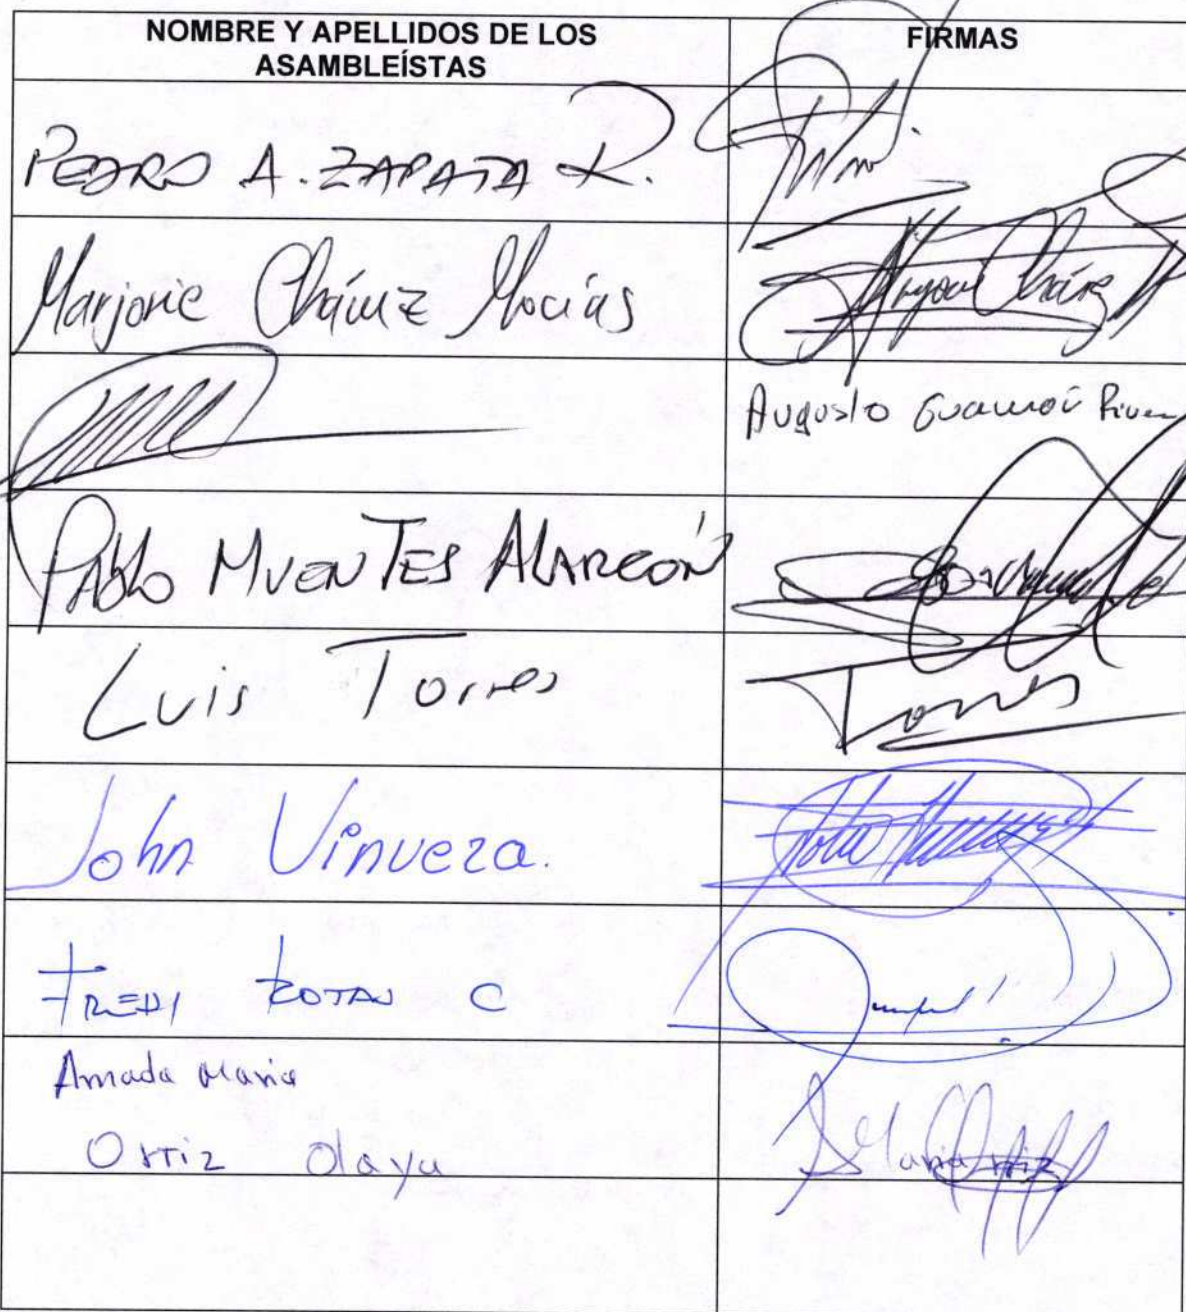 NOMBRE Y APELLIDOS DE LOS
ASAMBLEÍSTAS
FIRMAS
PEDRO A. ZAPATA R.
Marjorie Cháuez Macías
Marjorie Chávez M
Augusto
PABLO MUENTES ALARCÓN
Luis Torres
Torres
John Vinueza.
FREDI C
Amada Maria
Ortiz Olaya
Maria Ortiz